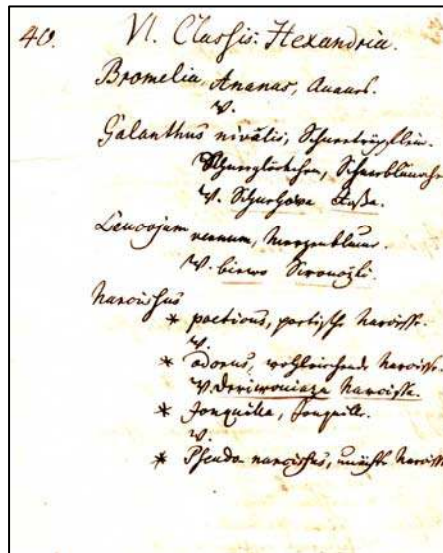 40. VI. Classis: Hexandria.
Bromelia, Ananas, Ananas.
W.
Galanthus nivalis, Schneetröpflein.
Schneeglöckchen, Schneeblümche
W.
Leucojum vernum, Merzenblume.
W.
Narcissus
* poeticus, poetische Narcisse.
W.
* odorus, wohlriechende Narcisse.
W. Narcisse.
* Jonquilla, Jonquille.
W.
* Pseudo narcissus, unächte Narciss